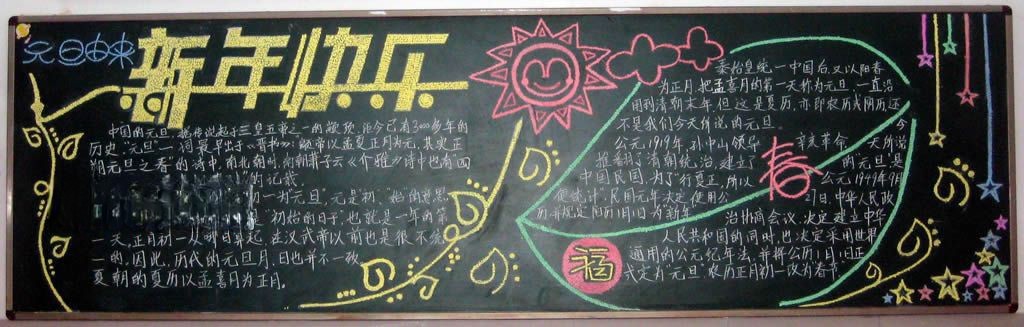 元旦由来
新年快乐
中国的元旦,据传说起于三皇五帝之一的颛顼,距今已有3000多年的
历史。"元旦"一词最早出于《晋书》:颛帝以孟夏正月为元,其实正
朔元旦之春"的诗中。南北朝时,南朝萧子云《介雅》诗中也有"四
"的记载
初一为"元旦",元是"初"、"始的意思
是"初始的日子"也就是一年的第
一天,正月初一从哪日算起,在汉武帝以前也是很不统
一的,因此,历代的元旦月、日也并不一致
夏朝的夏历以孟喜月为正月。
秦始皇统一中国后,又以阳春
为正月,把孟喜月的第一天称为元旦,一直沿
用到清朝末年但这是夏历,亦即农历或阴历还
不是我们今天所说的元旦。
公元1919年,孙中山领导
推翻了清朝统治,建立了
中国民国,为了"行夏正,所以
便统计",民国元年决定使用公
历并规定阳历1月1日为新年
春
辛亥革命 今天所说
的"元旦"是
公元1949年9月
21日,中华人民政
治协商会议,决定建立中华
人民共和国的同时,也决定采用世界
通用的公元纪年法,并将公历1月1日正
式定为"元旦"农历正月初一改为春节
福